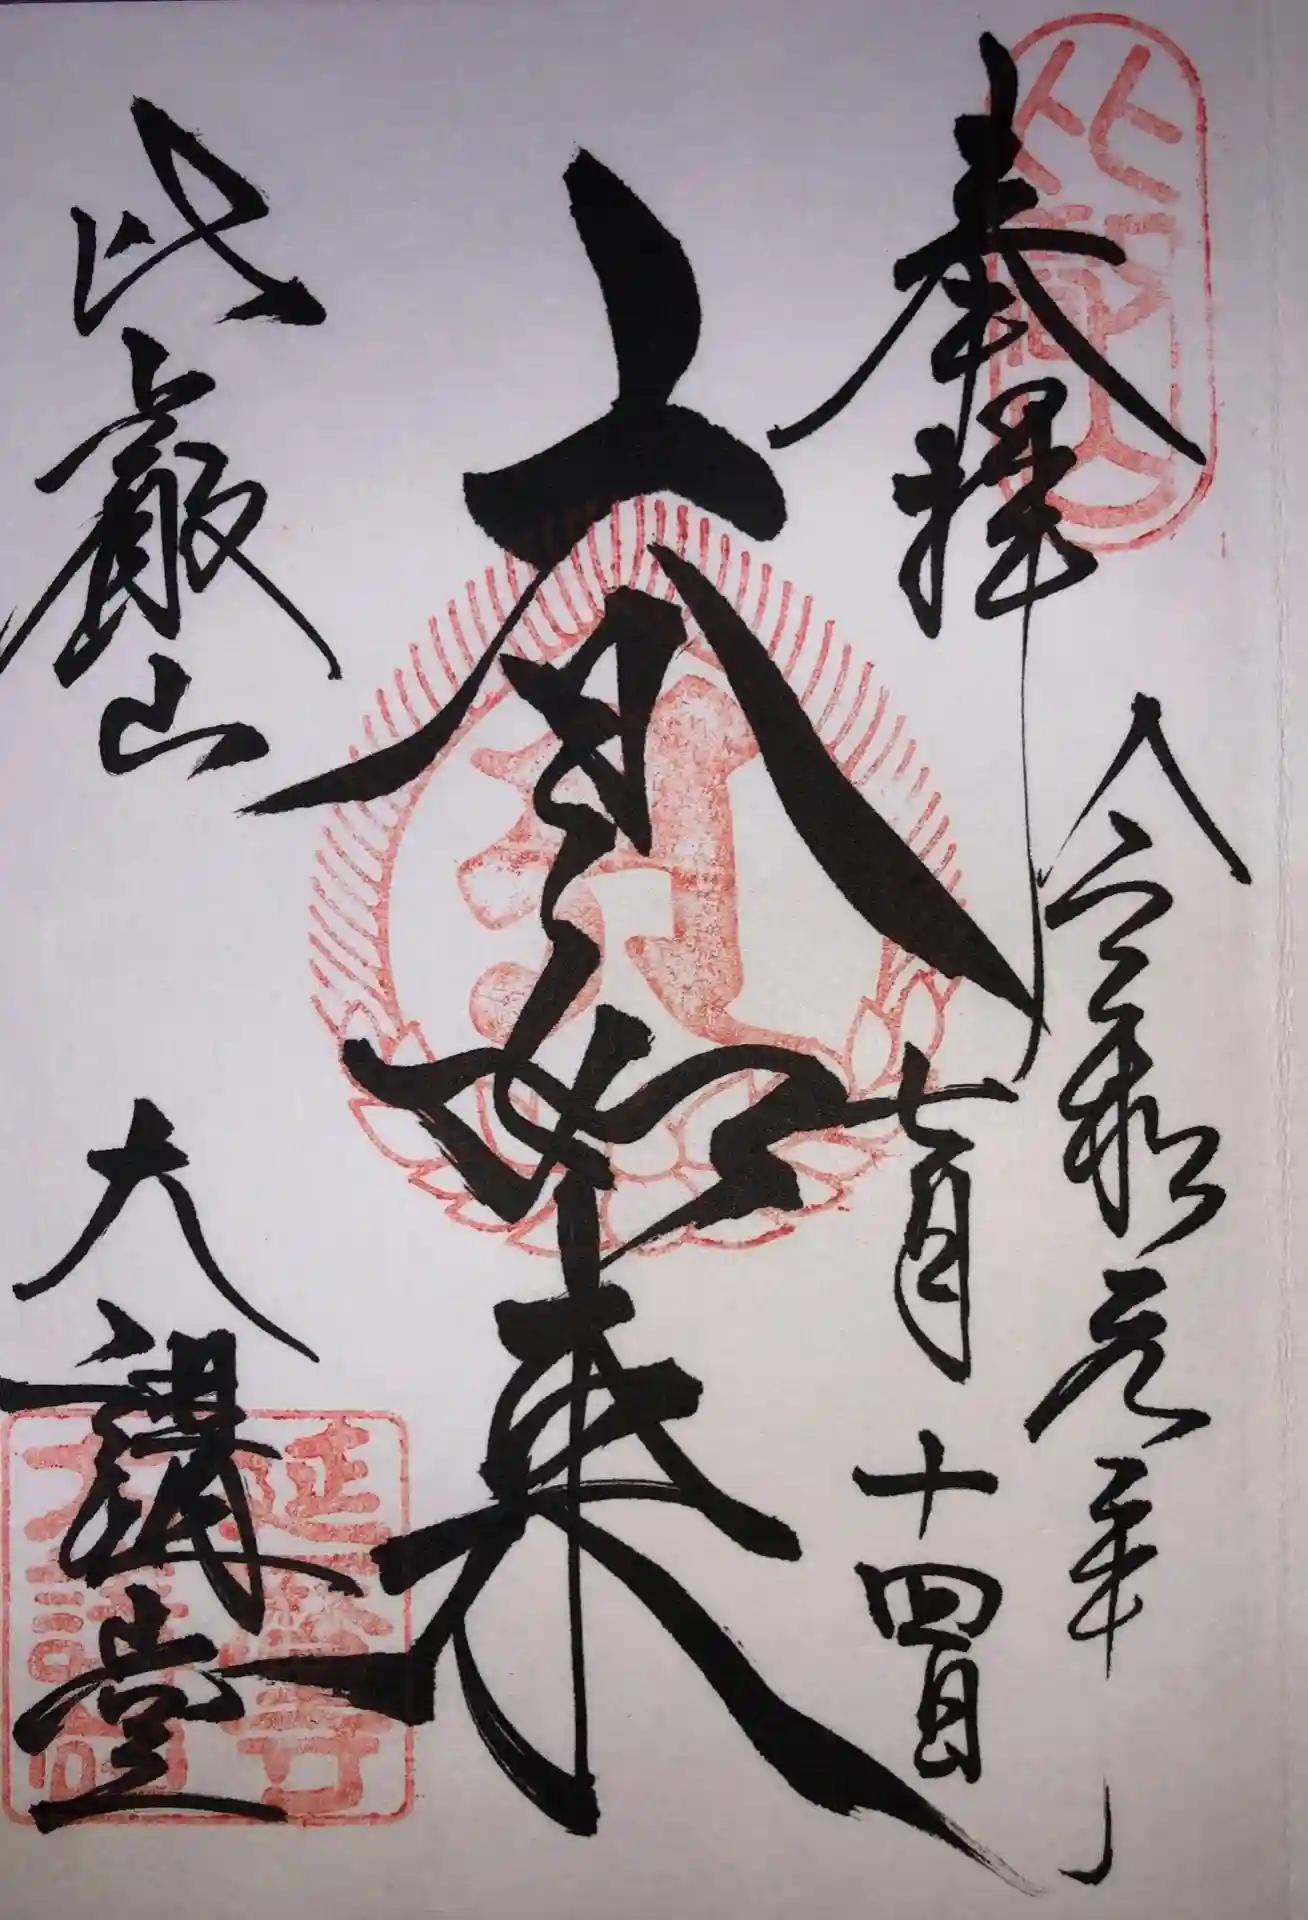 奉拝
令和元年
七月十四日
大日如来
比叡山
大講堂
比叡山
延暦寺
大講堂印